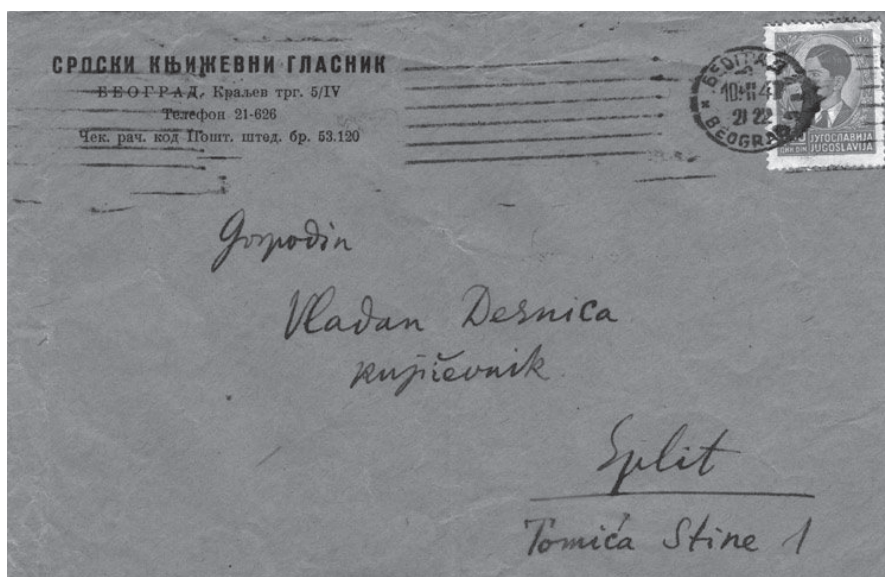 СРПСКИ КЊИЖЕВНИ ГЛАСНИК
БЕОГРАД, Краљев трг. 5/IV
Телефон 21-626
Чек. рач. код Пошт. штед. бр. 53.120
БЕОГРАД
21 22
BEOGRAD
ЈУГОСЛАВИЈА
DIN JUGOSLAVIJA
Gospodin
Vladan Desnica
književnik
Split
Tomića Stine 1